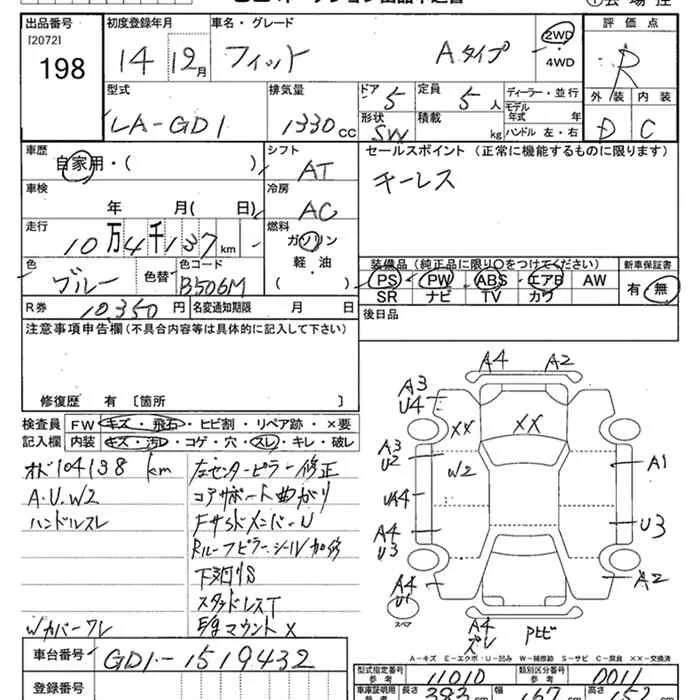 出品番号 初度登録年月 車名・グレード 評価点
[2072] 198 14年12月 フィット Aタイプ 2WD ・ 4WD R
型式 排気量 ドア 5 定員 5人 ディーラー・並行 外装 内装
LA-GD1 1330cc 形状 SW 積載 kg モデル年式 年式 ハンドル 左・右 D C
車歴 自家用・( ) シフト AT セールスポイント(正常に機能するものに限ります)
キーレス
車検 年 月( 日) 冷房 AC
走行 10万4千137km 燃料 ガソリン 軽・油 ( )
装備品(純正品に限り○をつけてください) 新車保証書
色 ブルー 色替 色コード B506M PS PW ABS エアB AW 有・無
SR ナビ TV カワ
R券 10,350円 名変通知期限 月 日 後日品
注意事項申告欄(不具合内容等は具体的に記入して下さい)
修復歴 有〔箇所 〕
検査員 FW キズ・飛石・ヒビ割・リペア跡・×要
記入欄 内装 キズ・汚レ・コゲ・穴・スレ・キレ・破レ
オド104138km 左センターピラー修正
A.U.W2 コアサポート曲がり
ハンドルスレ FサイドメンバーU
Rルーフピラーシール加修
下廻りS
スタッドレスT
Wカバーワレ Egマウント×
A4 A2
A3 U4 XX XX
A3 U2 W2 A1
UA4
A4 U3 U3
A4 U1 A2
スペア A4 ズレ Pビ
A-キズ E-エクボ U-凹み W-補修跡 S-サビ C-腐食 XX-交換済
車台番号 GD1-1519432
型式指定番号 参考 11010 類別区分番号 参考 0011
登録番号 車庫証明用 参考 長さ 383cm 幅 167cm 高さ 152cm